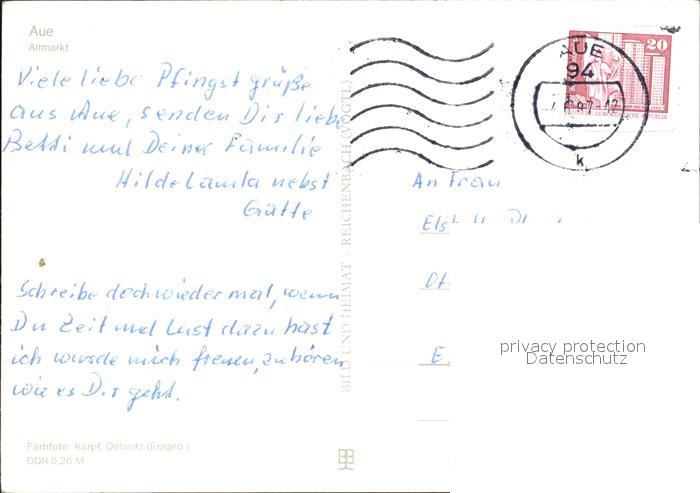 Aue
Altmarkt
Viele liebe Pfingstgrüße
aus Aue, senden Dir liebe
Betti und Deiner Familie
Hilde nebst
Gatte
Schreibe doch wieder mal, wenn
Du Zeit und Lust dazu hast
ich würde mich freuen, zu hören
wie es Dir geht.
Farbfoto: Karpf, Oelsnitz (Erzgeb.)
DDR 0,20 M
BILD UND HEIMAT · REICHENBACH (VOGTL)
AUE
94
k
20
An Frau
privacy protection
Datenschutz